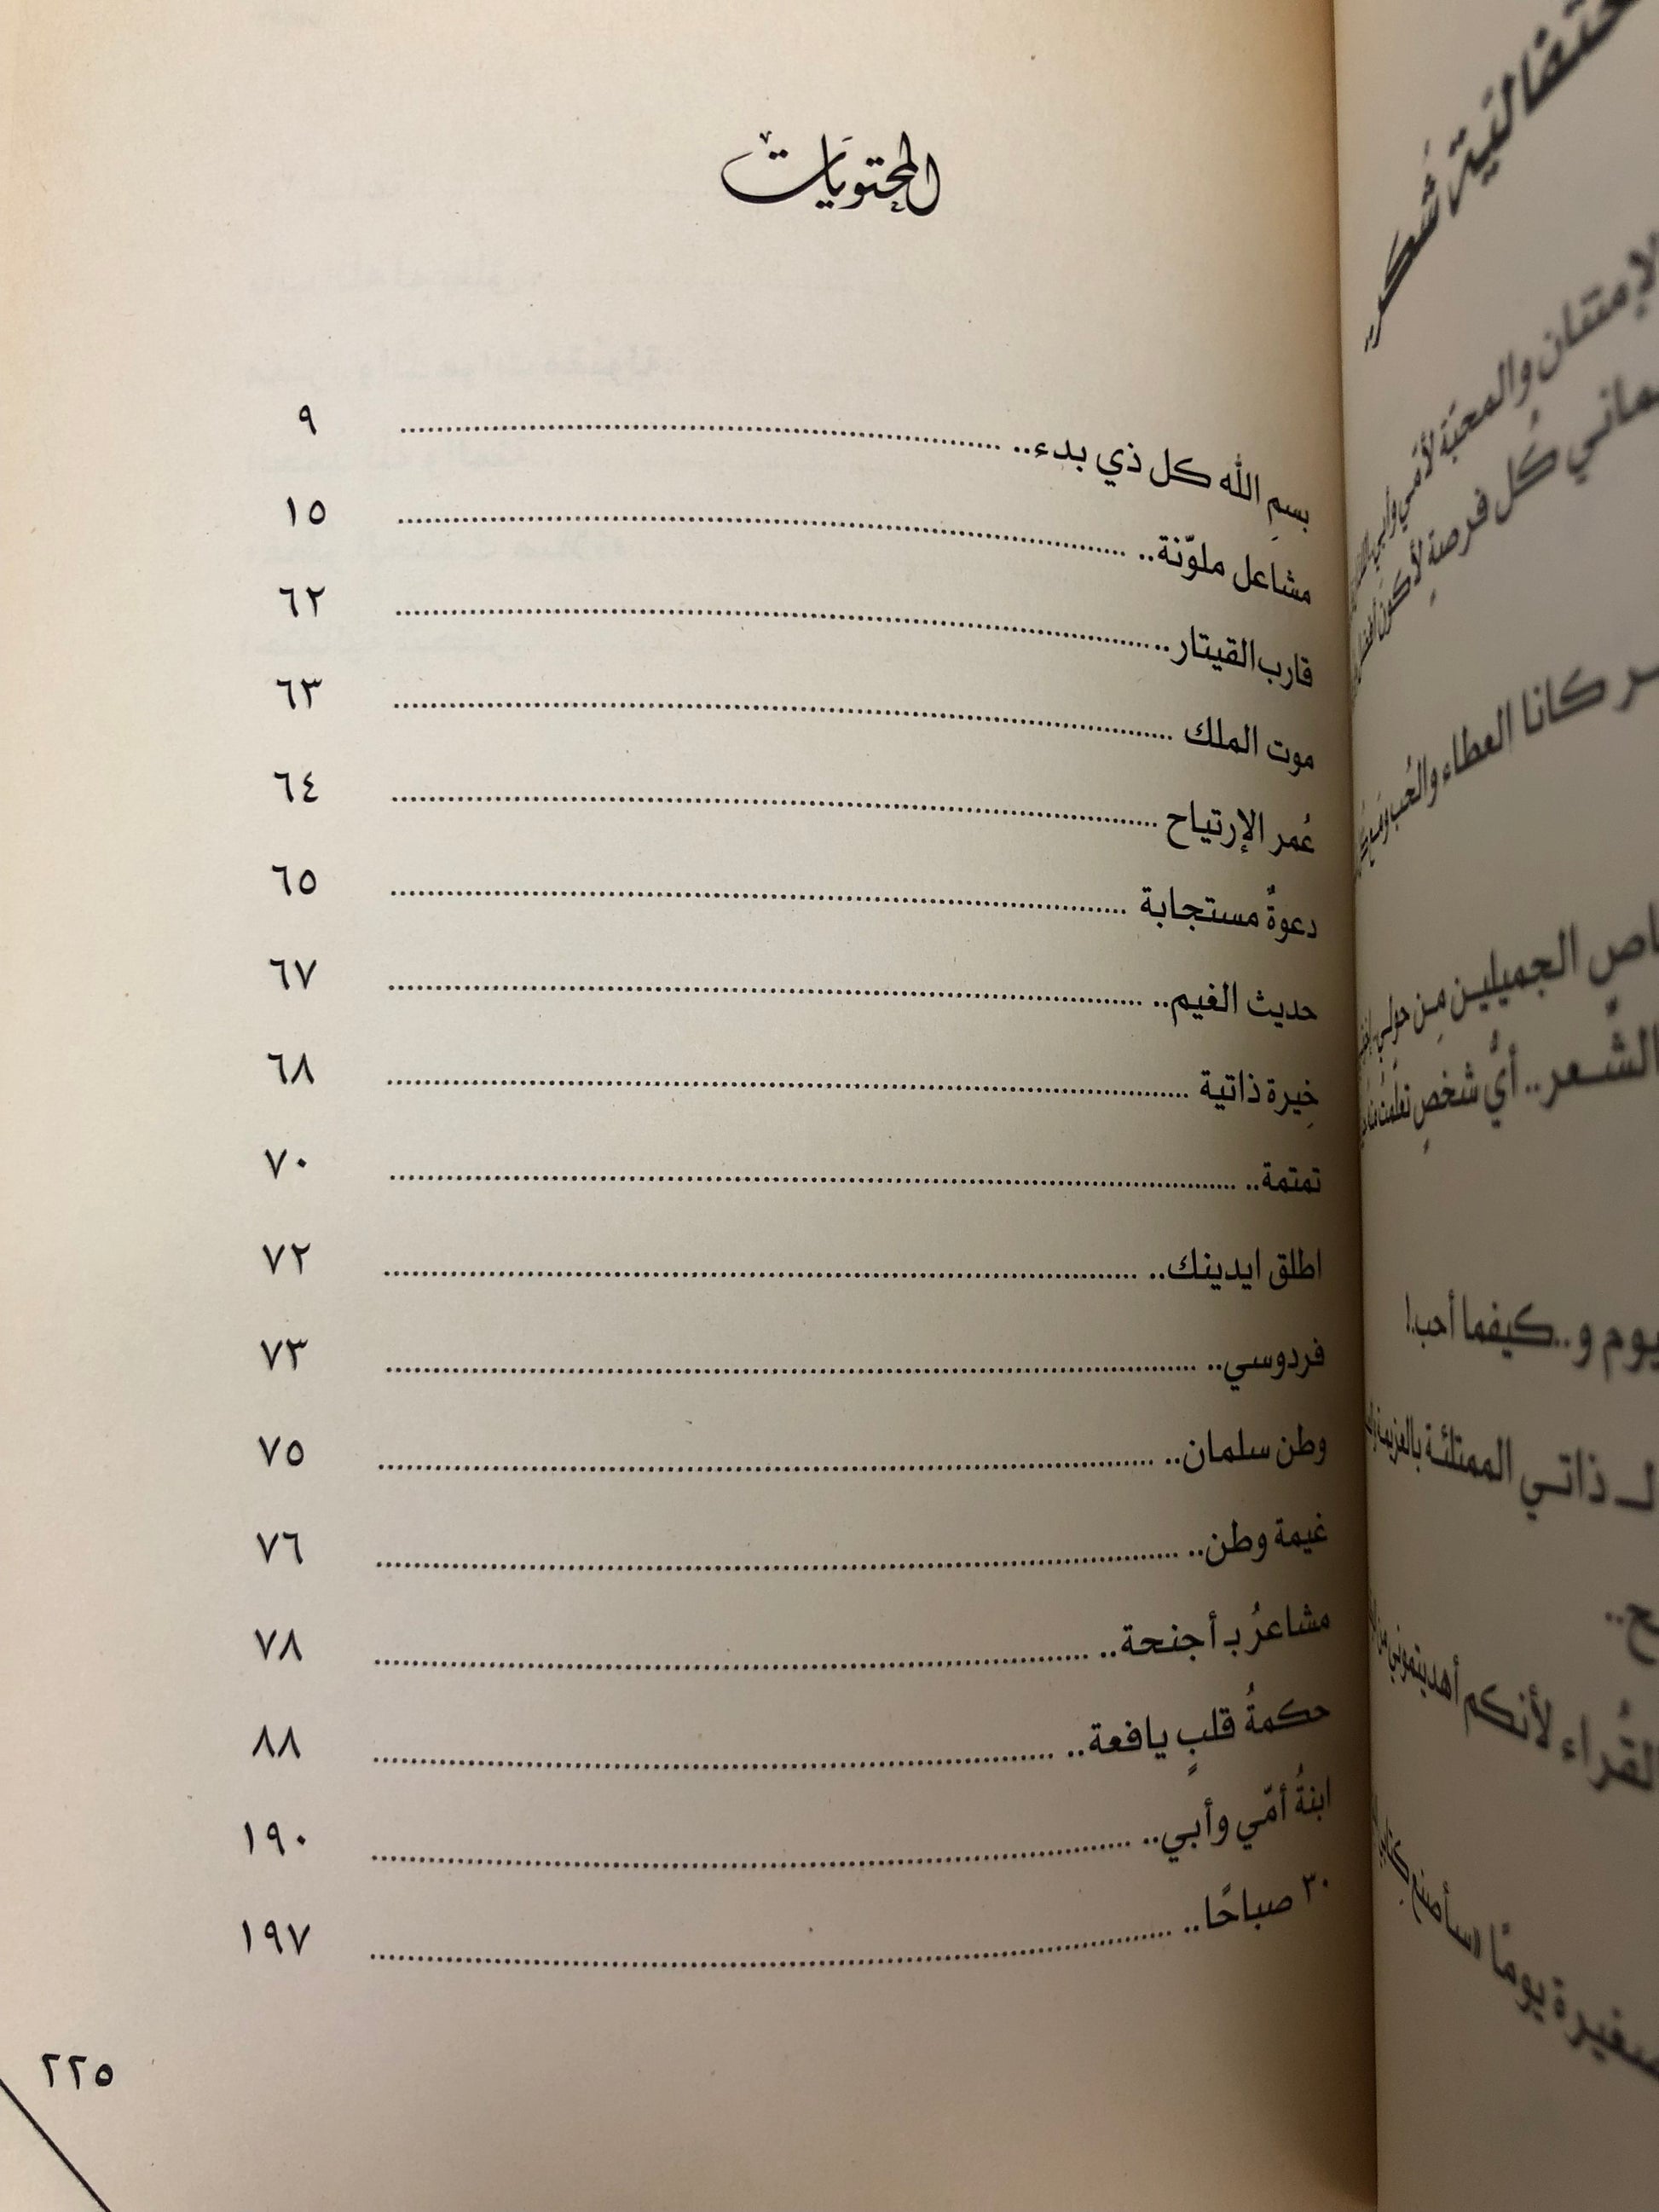 المحتويات
بسمِ الله كل ذي بدء.. ٩
مشاعل ملوّنة.. ١٥
قارب القيتار.. ٦٢
موت الملك ٦٣
عُمر الإرتياح ٦٤
دعوةٌ مستجابة ٦٥
حديث الغيم.. ٦٧
خِيرة ذاتية ٦٨
تمتمة.. ٧٠
اطلق ايدينك.. ٧٢
فردوسي.. ٧٣
وطن سلمان.. ٧٥
غيمة وطن.. ٧٦
مشاعرُ بـ أجنحة.. ٧٨
حكمةُ قلبٍ يافعة.. ٨٨
ابنةُ أمّي وأبي.. ١٩٠
٣٠ صباحًا.. ١٩٧
٢٢٥
شُكر
والمحبّة لأمّي وأبي
كُل فرصةٍ لأكون
كانا العطاء والحُب
الجميلين مِن حولي
الشّعر.. أيُّ شخصٍ تعلّمت
و..كيفما أحب!
ذاتي الممتلئة بالعزيمة
القُراء لأنكم أهديتموني
يومًا «سأصنع